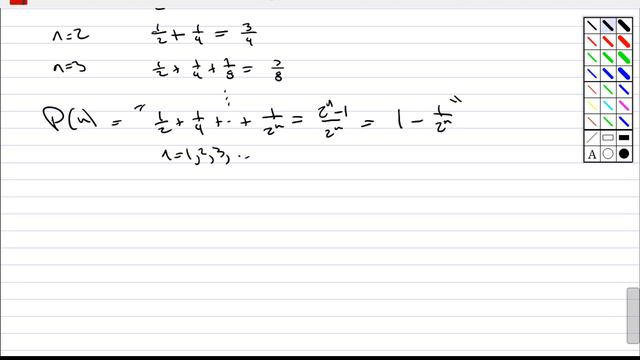 n=2 1/2 + 1/4 = 3/4
n=3 1/2 + 1/4 + 1/8 = 7/8
⋮
P(n) = " 1/2 + 1/4 + .. + 1/2ⁿ = (2ⁿ-1)/2ⁿ = 1 - 1/2ⁿ "
n=1,2,3, ..
A